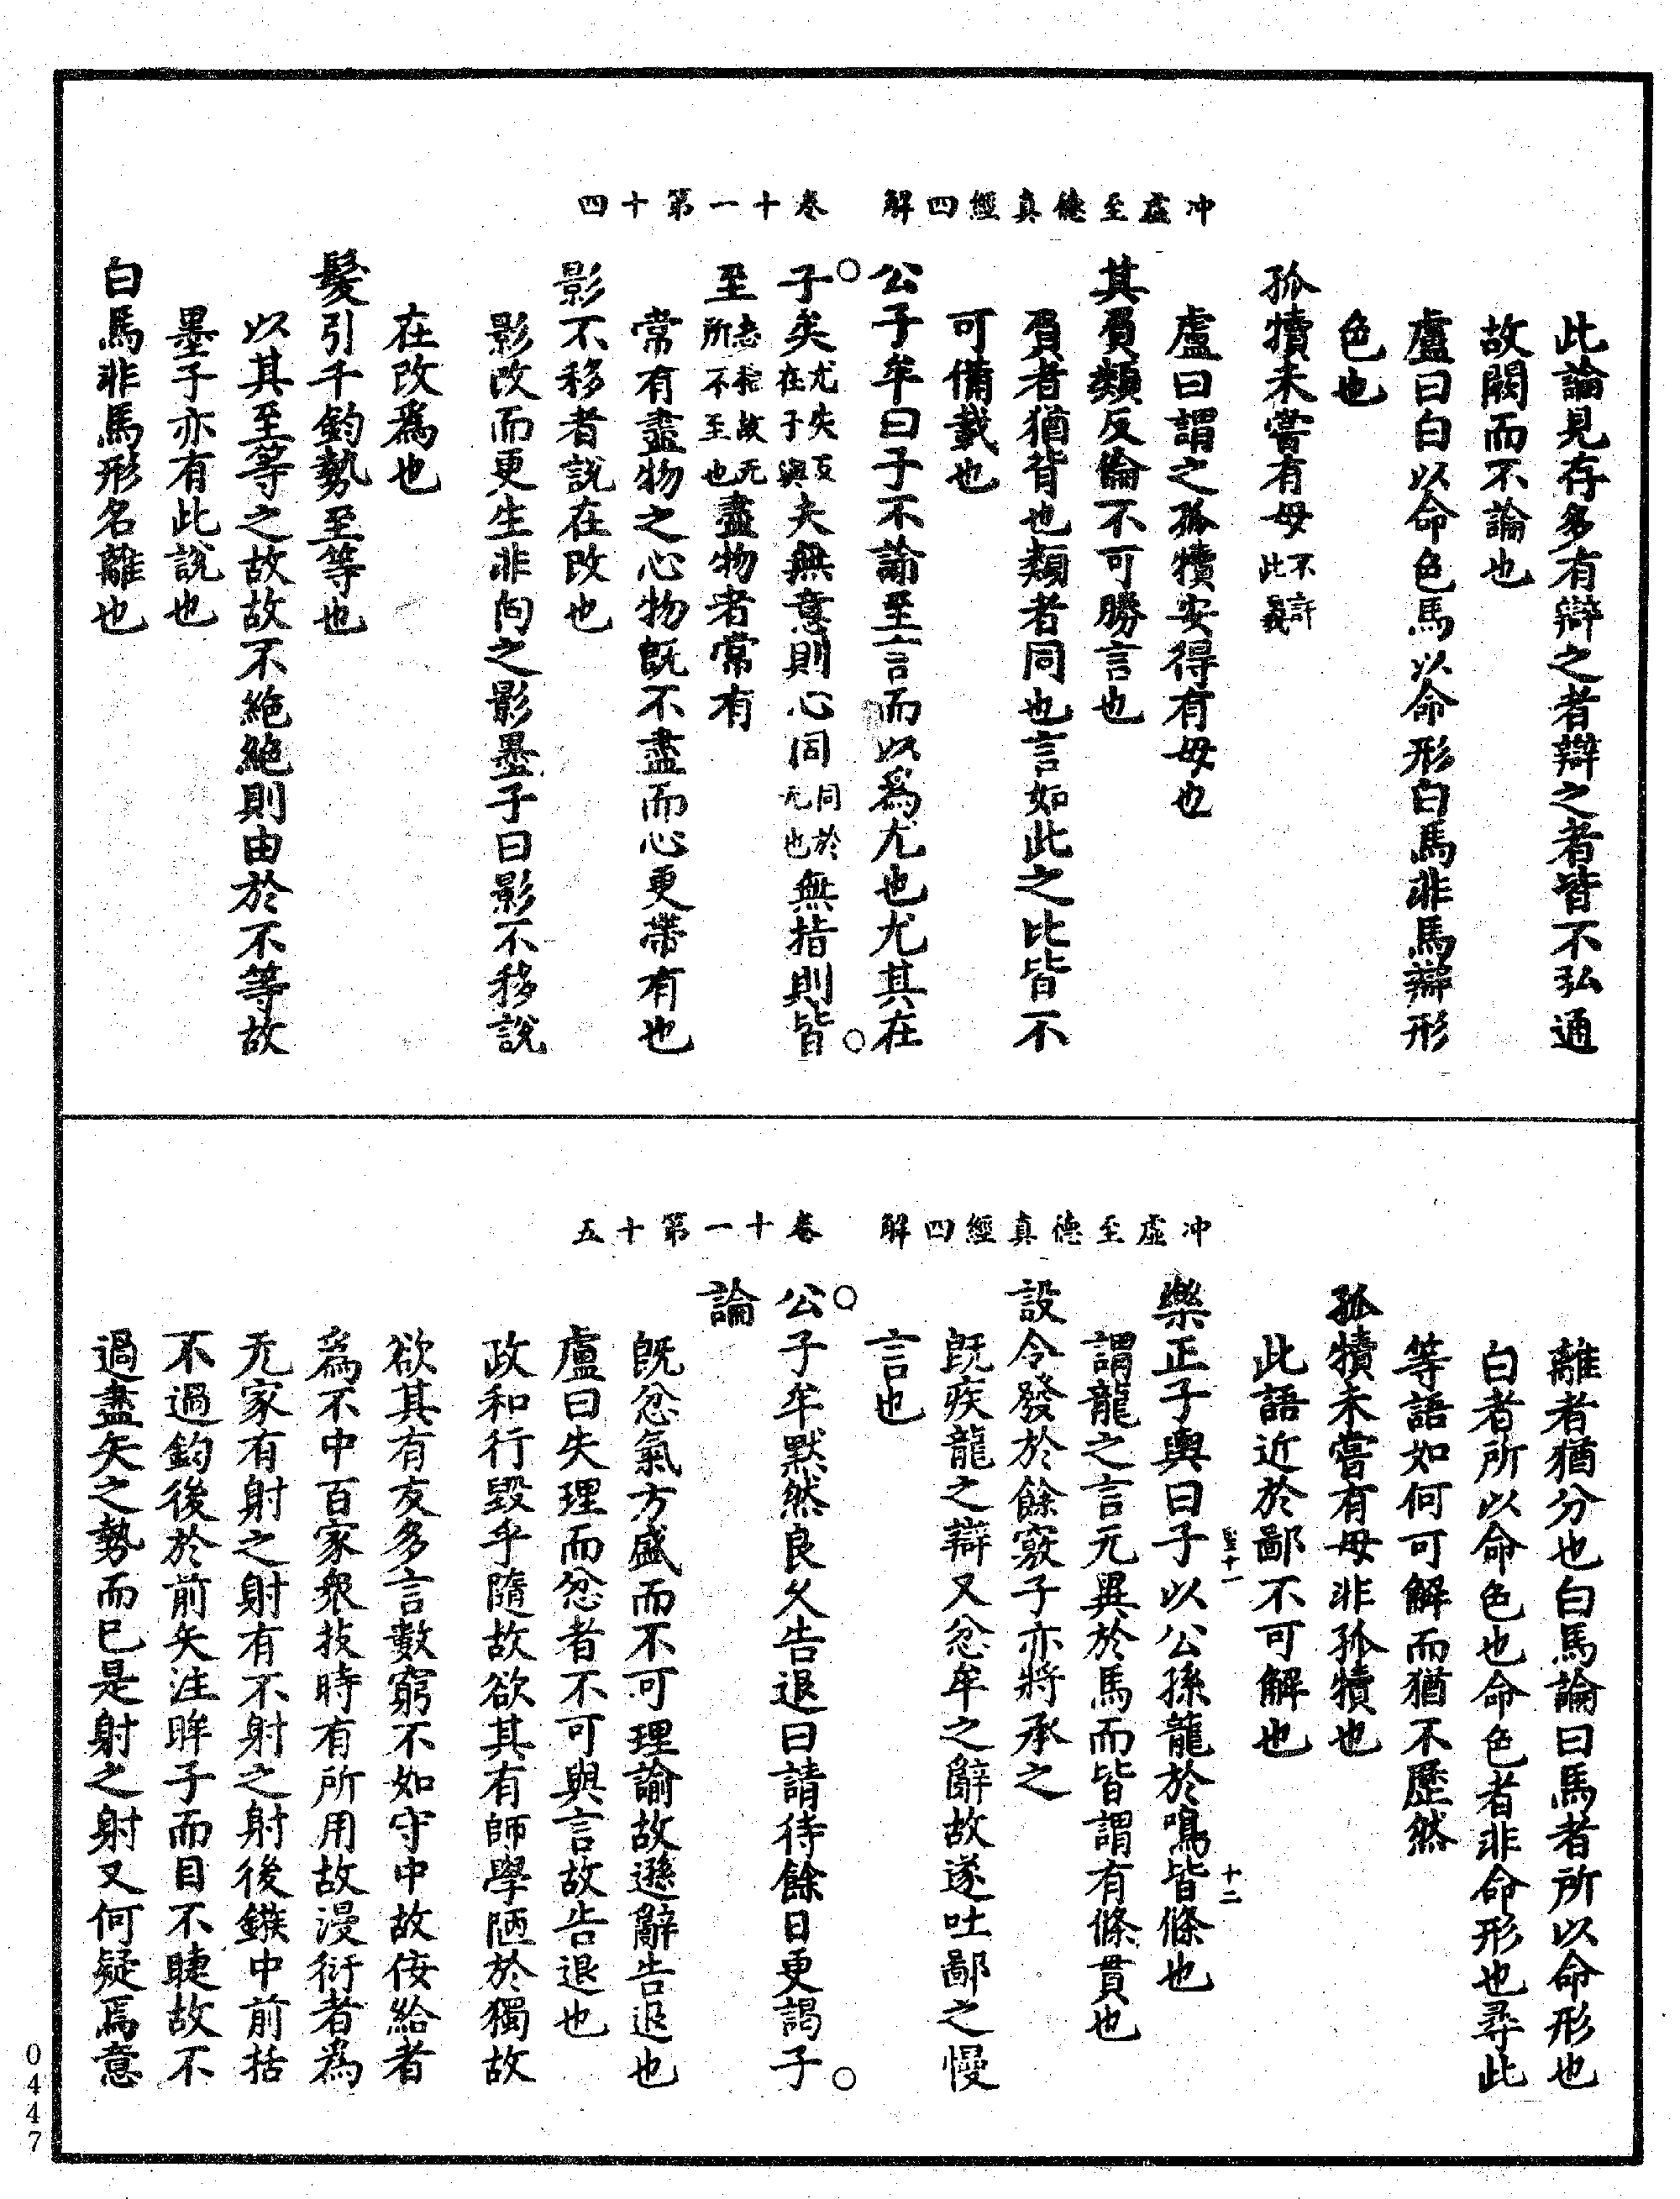 冲虛至德真經四解　卷十一第十四
此論見存多有辯之者辯之者皆不弘通
故闕而不論也
盧曰白以命色馬以命形白馬非馬辯形
色也
孤犢未嘗有母不許此義
盧曰謂之孤犢安得有母也
其負類反倫不可勝言也
負者猶背也類者同也言如此之比皆不
可備載也
公子牟曰子不諭至言而以爲尤也尤其在
子矣尤失反在子與夫無意則心同同於无也無指則皆
至忘指故无所不至也盡物者常有
常有盡物之心物既不盡而心更帶有也
影不移者說在改也
影改而更生非向之影墨子曰影不移說
在改爲也
髮引千鈞勢至等也
以其至等之故故不絶絶則由於不等故
墨子亦有此說也
白馬非馬形名離也
冲虛至德真經四解　卷十一第十五
離者猶分也白馬論曰馬者所以命形也
白者所以命色也命色者非命形也尋此
等語如何可解而猶不歷然
孤犢未嘗有母非孤犢也
此語近於鄙不可解也
樂正子輿曰子以公孫龍於鳴皆條也
謂龍之言无異於馬而皆謂有條貫也
設令發於餘竅子亦將承之
既疾龍之辯又忿牟之辭故遂吐鄙之慢
言也
公子牟默然良久告退曰請待餘日更謁子
論
既忿氣方盛而不可理諭故遜辭告退也
盧曰失理而忿者不可與言故告退也
政和行毀乎隨故欲其有師學陋於獨故
欲其有友多言數窮不如守中故佞給者
爲不中百家衆技時有所用故漫衍者為
无家有射之射有不射之射後鏃中前括
不過鈞後於前矢注眸子而目不睫故不
過盡矢之勢而已是射之射又何疑焉意
聖十一
十二
0447